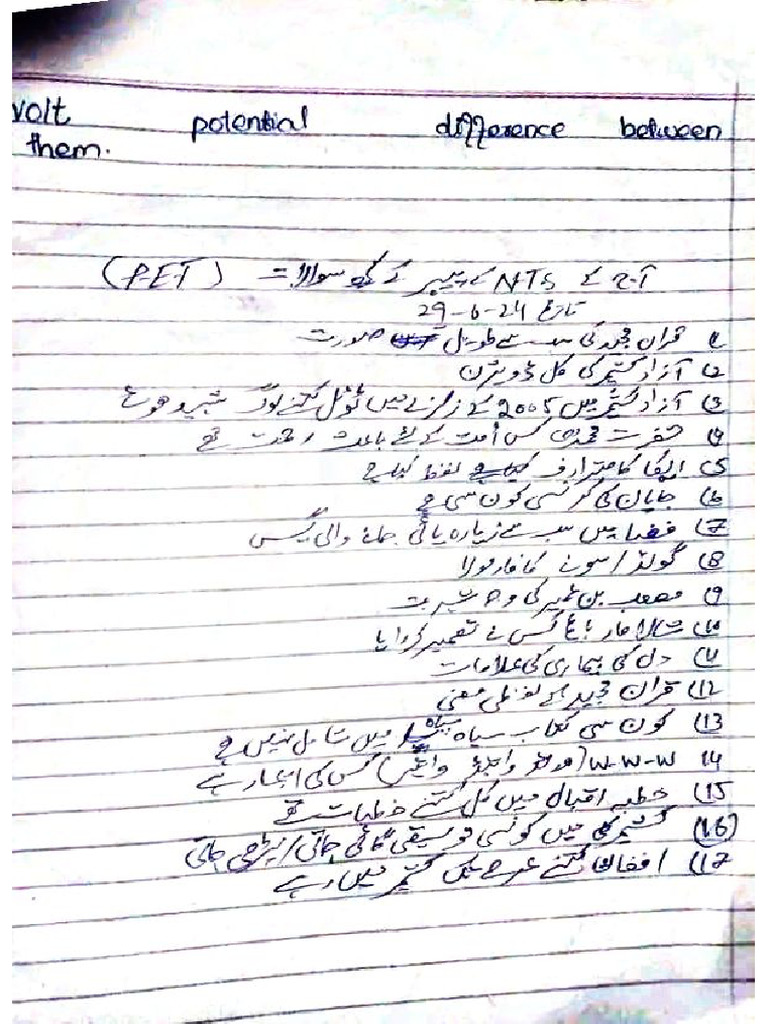 volt potential difference between
them.
آج کے NTS کے پیپر کے کچھ سوالات = (P.E.T)
تاریخ 29-6-24
1) قران مجید کی سب سے طویل صورت
2) آزاد کشمیر کی کل ڈویژن
3) آزاد کشمیر میں 2005 کے زلزلے میں ٹوٹل کتنے لوگ شہید ہوئے
4) حضرت محمد کس اُمت کے لئے باعث رحمت تھے
5) کا مترادف لفظ کیا ہے
6) جاپان کی کرنسی کون سی ہے
7) فضا میں سب سے زیادہ پائی جانے والی گیس
8) گولڈ/سونے کا فارمولا
9) مصعب بن عمیر کی وجہ شہرت
10) شالامار باغ کس نے تعمیر کروایا
11) دل کی بیماری کی علامات
12) قران مجید کے لفظی معنی
13) کون سی کتاب میں شامل نہیں ہے
14) W-W-W (ورلڈ وائیڈ ) کس کی ایجاد ہے
15) خطبہ اقبال میں کل کتنے خطبات تھے
16) کشمیر میں کونسی موسیقی گائی جاتی/پڑھی جاتی
17) افغان کتنے عرصے تک کشمیر میں رہے